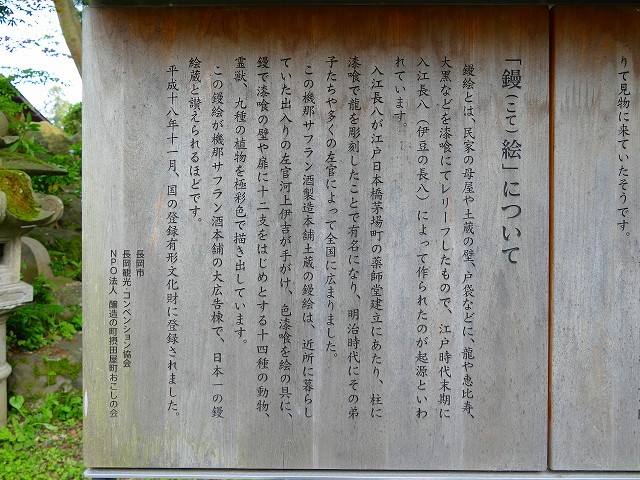 りて見物に来ていたそうです。
「鏝(こて)絵」について
鏝絵とは、民家の母屋や土蔵の壁、戸袋などに、龍や恵比寿、
大黒などを漆喰にてレリーフしたもので、江戸時代末期に
入江長八(伊豆の長八)によって作られたのが起源といわ
れています。
入江長八が江戸日本橋茅場町の薬師堂建立にあたり、柱に
漆喰で龍を彫刻したことで有名になり、明治時代にその弟
子たちや多くの左官によって全国に広まりました。
この機那サフラン酒製造本舗土蔵の鏝絵は、近所に暮らし
ていた出入りの左官河上伊吉が手がけ、色漆喰を絵の具に、
鏝で漆喰の壁や扉に十二支をはじめとする十四種の動物、
霊獣、九種の植物を極彩色で描き出しています。
この鏝絵が機那サフラン酒本舗の大広告棟で、日本一の鏝
絵蔵と讃えられるほどです。
平成十八年十一月、国の登録有形文化財に登録されました。
長岡市
長岡観光・コンベンション協会
NPO法人 醸造の町摂田屋町おこしの会